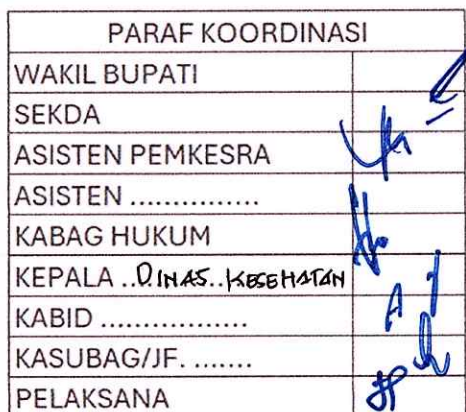 PARAF KOORDINASI
WAKIL BUPATI
SEKDA
ASISTEN PEMKESRA
ASISTEN ...............
KABAG HUKUM
KEPALA ..DINAS..KESEHATAN
KABID .................
KASUBAG/JF. .......
PELAKSANA